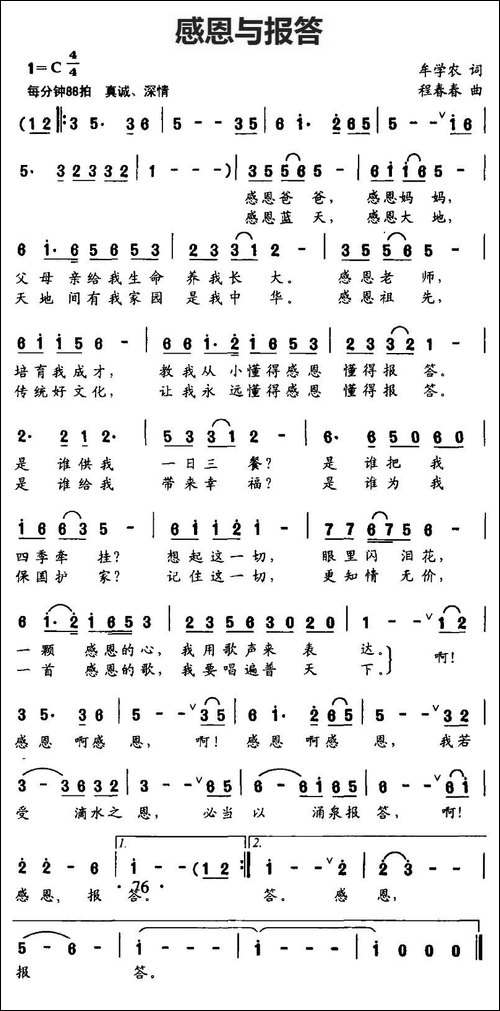 感恩与报答
1=C 4/4
牟学农 词
每分钟88拍 真诚、深情
程春春 曲
(1 2 ‖: 3 5· 3 6 | 5 - - 3 5 | 6 i· 2 6 5 | 5 - - ∨ i 6 |
5· 3 2 3 3 2 | 1 - - -) | 3 5 5 6 5 - | 6 i i 6 5 - |
感恩爸 爸， 感恩妈 妈，
感恩蓝 天， 感恩大 地，
6 i· 6 5 6 5 3 | 2 3 3 1 2 - | 3 5 5 6 5 - |
父母 亲给我生命 养我长 大。 感恩老 师，
天地 间有我家园 是我中 华。 感恩祖 先，
6 i i 5 6 - | 6 6 i· 2 i 6 5 3 | 2 3 3 2 1 - |
培育我成才， 教我从 小懂得感恩 懂得报 答。
传统好文化， 让我永 远懂得感恩 懂得报 答。
2· 2 1 2· | 5 3 3 1 2 - | 6· 6 5 0 6 0 |
是 谁供我 一日三 餐？ 是 谁把 我
是 谁给我 带来幸 福？ 是 谁为 我
i 6 6 3 5 - | 6 i i 2 i - | 7 7 6 7 5 6 - |
四季牵 挂？ 想起这一切， 眼里闪 泪花，
保国护 家？ 记住这一切， 更知情 无价，
6 i· 2 i 6 5 3 | 2 3 5 6 3 0 2 0 | 1 - - ∨ 1 2 |
一颗 感恩的心，我用歌声来 表 达。 啊！
一首 感恩的歌，我要唱遍普 天 下。
3 5· 3 6 | 5 - - ∨ 3 5 | 6 i· 2 6 5 | 5 - - ∨ 3 2 |
感恩 啊感 恩， 啊！ 感恩 啊感 恩， 我若
3 - 3 6 3 2 | 3 - - ∨ 6 5 | 6 - 6 i 6 5 | 6 - - ∨ i 2 |
受 滴水之 恩， 必当 以 涌泉报 答，啊！
1. 2.
2 2 - 6 | i - - (1 2 :‖ i - - ∨ 2 | 2 i - - |
感恩，报 答。 答。 感 恩，
· 76 ·
5 - 6 - | i - - - | i - - - | i 0 0 0 ‖
报 答。